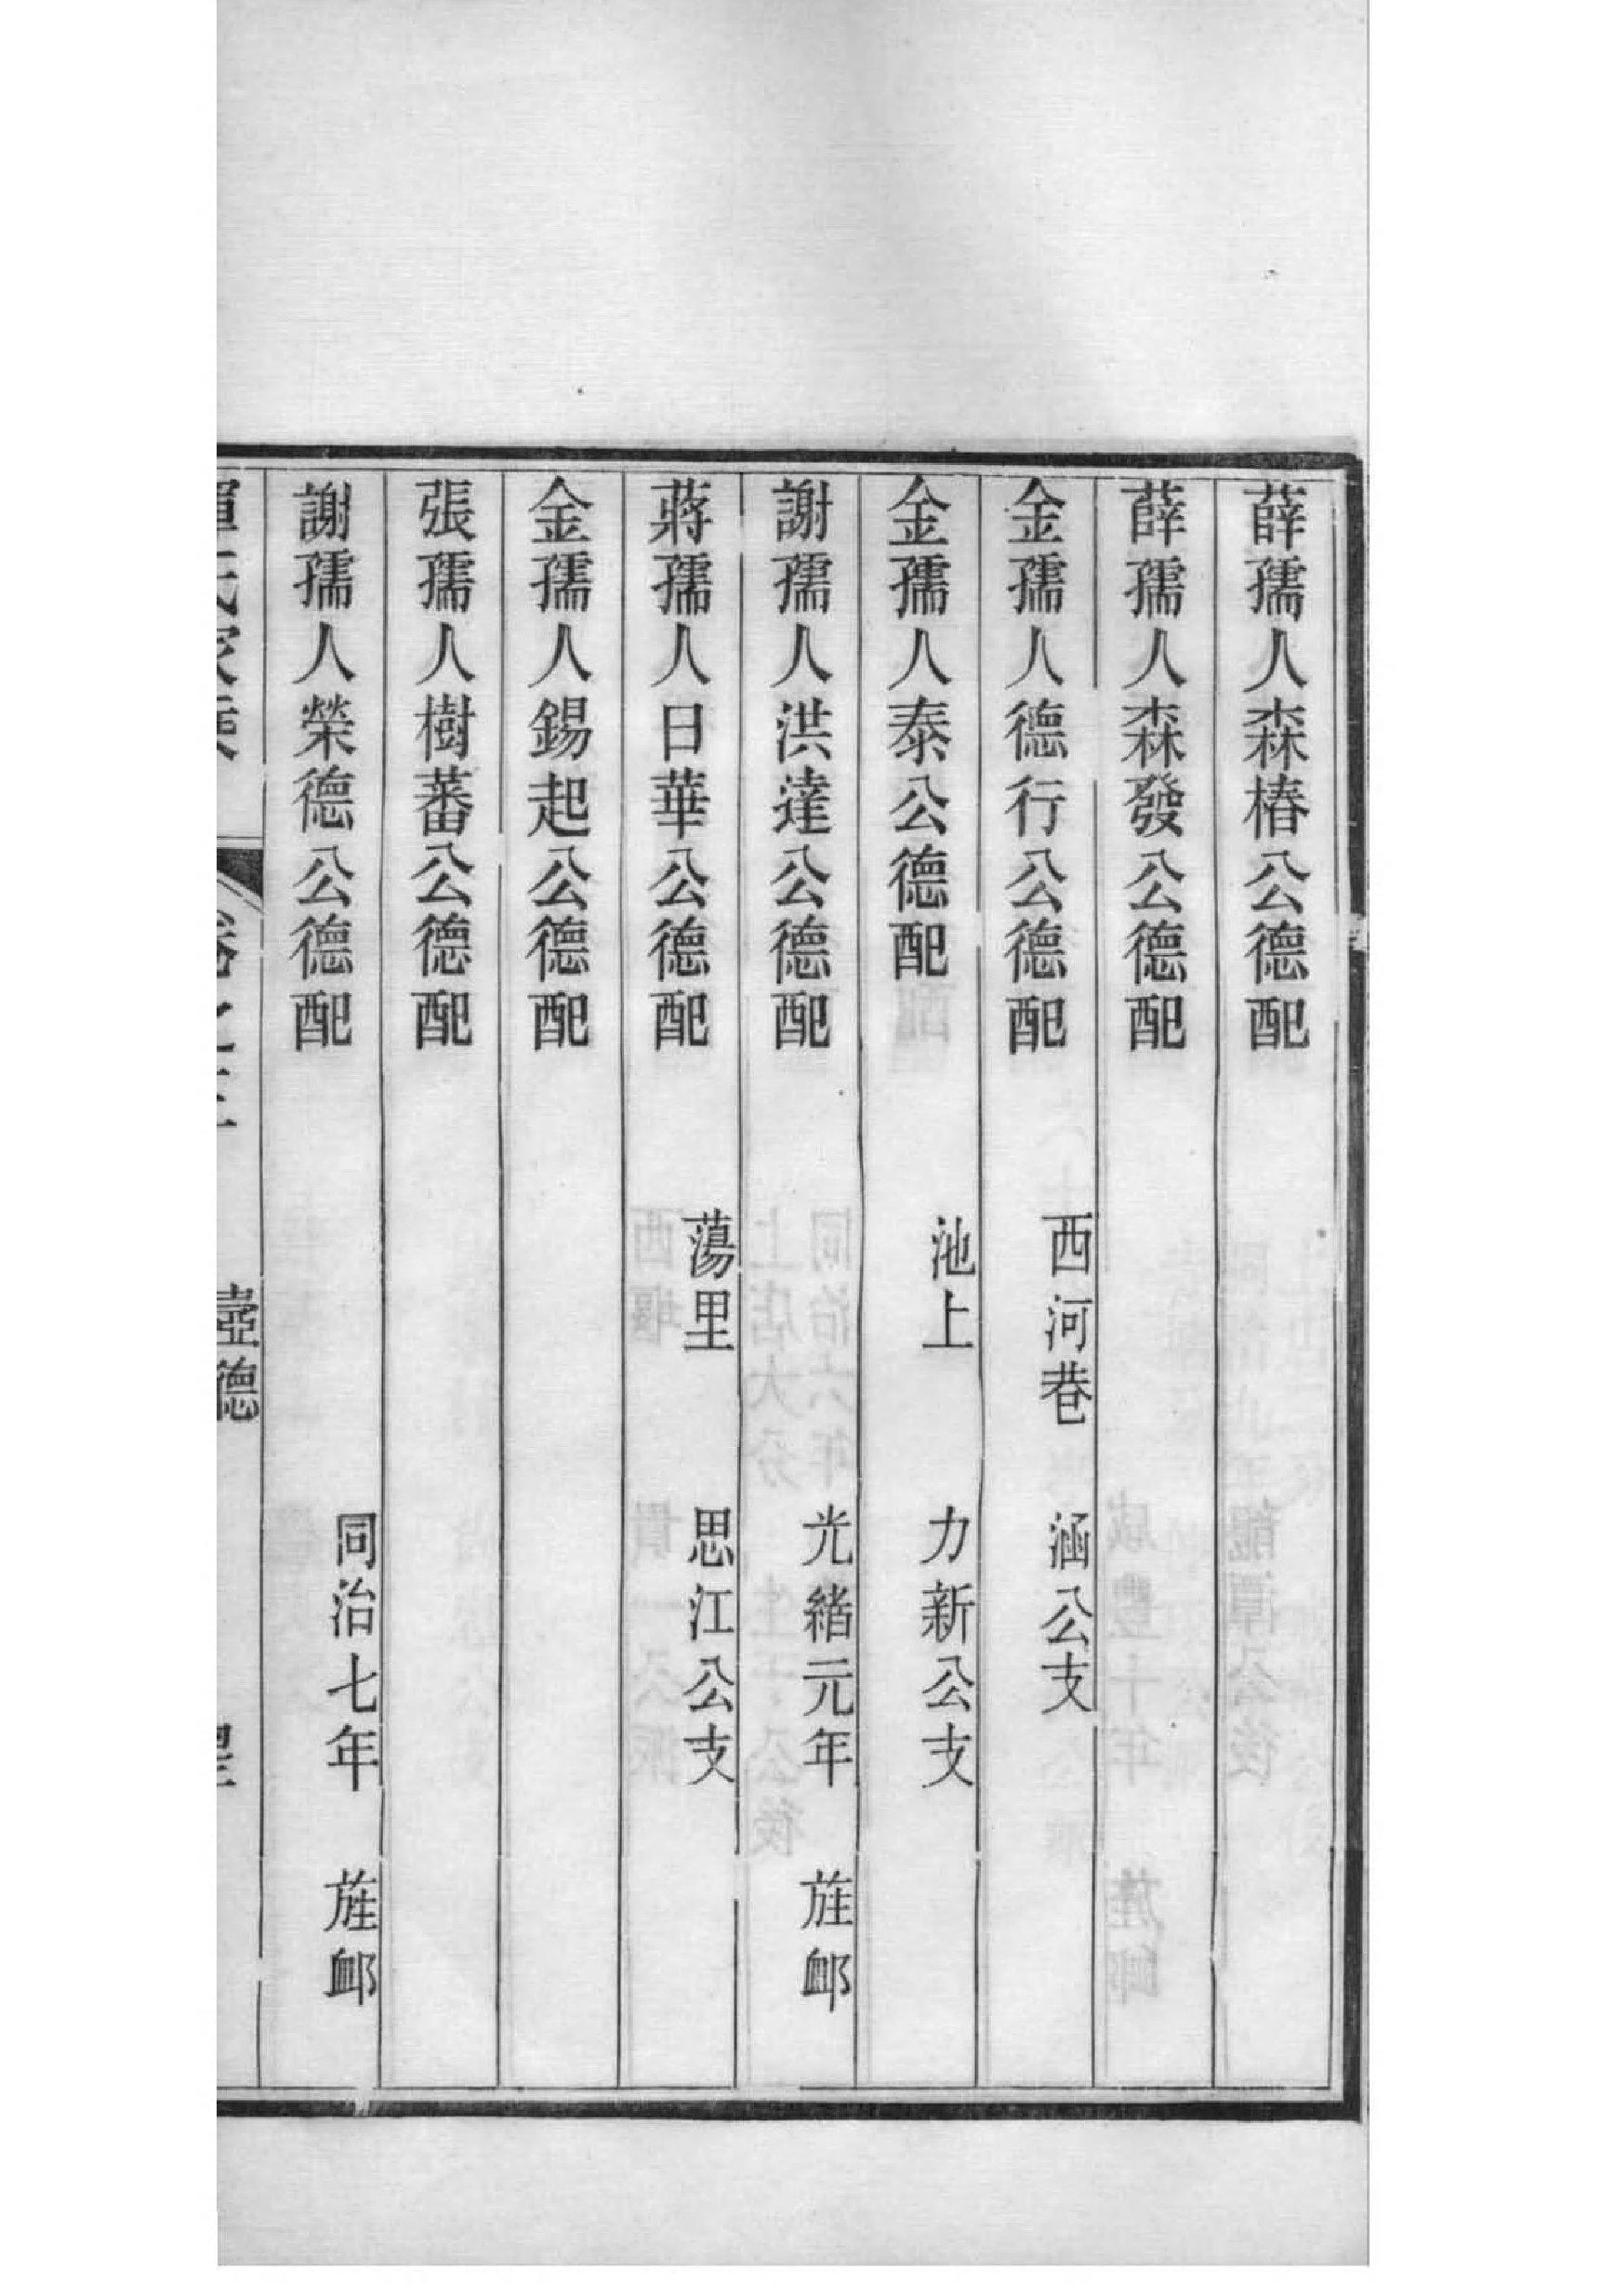 薛孺人森椿公德配
薛孺人森發公德配
金孺人德行公德配 西河巷 涵公支
金孺人泰公德配 池上 力新公支
謝孺人洪達公德配 光緒元年 旌卹
蔣孺人日華公德配 蕩里 思江公支
金孺人錫起公德配
張孺人樹蕃公德配
謝孺人榮德公德配 同治七年 旌卹
壼德